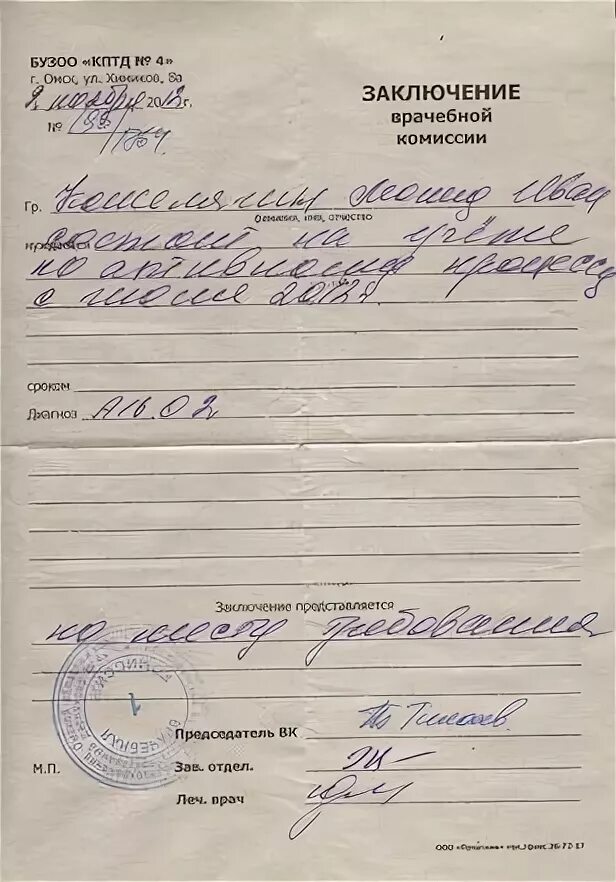 БУЗОО «КПТД № 4»
г. Омск, ул. Химиков, 8а
2 ноября 2012 г,
№
ЗАКЛЮЧЕНИЕ
врачебной
комиссии
Гр. Леонид Иван
Фамилия, имя, отчество
состоит на учёте
по активному процессу
с июля 2012г.
сроком
Диагноз А16.02
Заключение представляется
по месту требования
Председатель ВК
Зав. отдел.
М.П.
Леч. врач